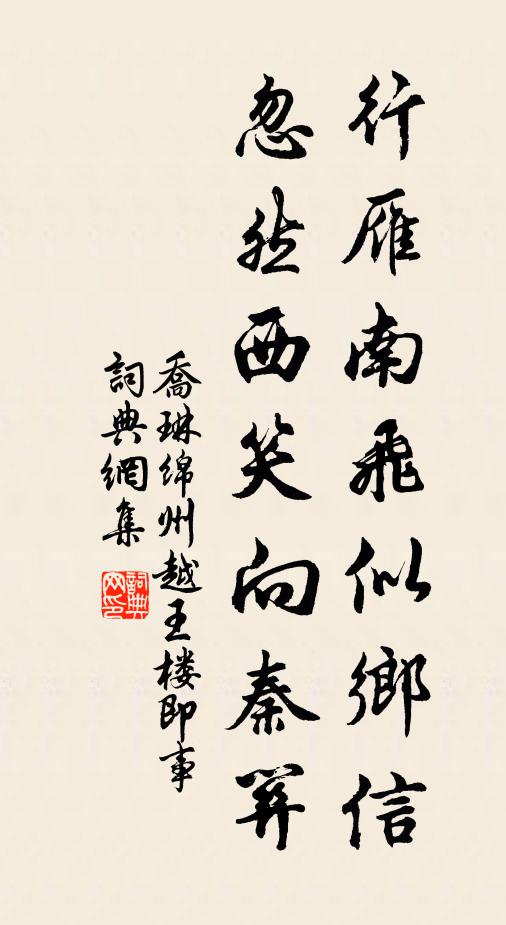 行雁南飛似鄉信
忽然西笑向秦關
喬琳绵州越王楼即事
詞典網集
詞典網印